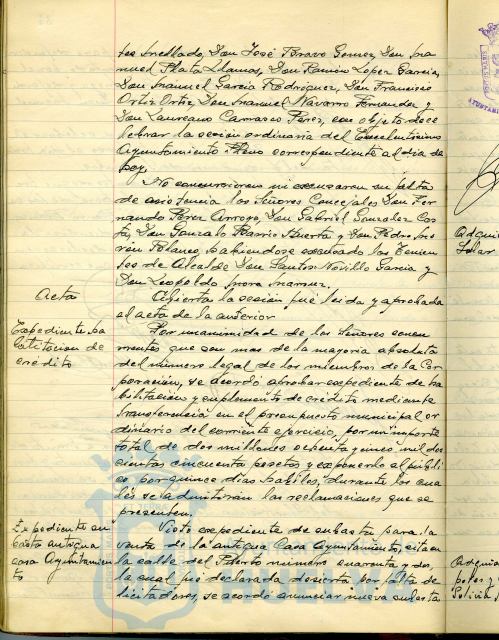 tes Mellado, Don José Bravo Gomez, Don Ma
nuel Plata Llamas, Don Ramón López García,
Don Manuel García Rodríguez, Don Francisco
Ortiz Ortiz, Don Manuel Navarro Fernandez y
Don Laureano Carrasco Perez, con objeto de ce
lebrar la sesión ordinaria del Excelentísimo
Ayuntamiento Pleno correspondiente al día de
hoy.
No concurrieron ni excusaron su falta
de asistencia los Señores Concejales Don Fer
nando Pérez Arroyo, Don Gabriel Gonzalez Cos
ta, Don Gonzalo Barrio Huerta y Don Pedro
Blanco, habiendose excusado los Tenien
tes de Alcalde Don Santos Novillo García y
Don Leopoldo Mora
Acta
Abierta la sesión fué leida y aprobada
el acta de la anterior
Expediente ha
bilitacion de
crédito
Por unanimidad de los Señores concu
rrentes que son mas de la mayoría absoluta
del número legal de los miembros de la Cor
poración, se acordó aprobar expediente de ha
bilitación y suplemento de crédito mediante
transferencia en el presupuesto municipal or
dinario del corriente ejercicio, por un importe
total de dos millones ochenta y cinco mil dos
cientas cincuenta pesetas y exponerlo al públi
co por quince días habiles, durante los cua
les se admitirán las reclamaciones que se
presenten.
Expediente su
basta antigua
casa Ayuntamien
to
Visto expediente de subasta para la
venta de la antigua Casa Ayuntamiento, sita en
la calle del Puerto número cuarenta y dos,
la cual fué declarada desierta por falta de
licitadores, se acordó anunciar nueva subasta
Adqui
Solar
Adquis